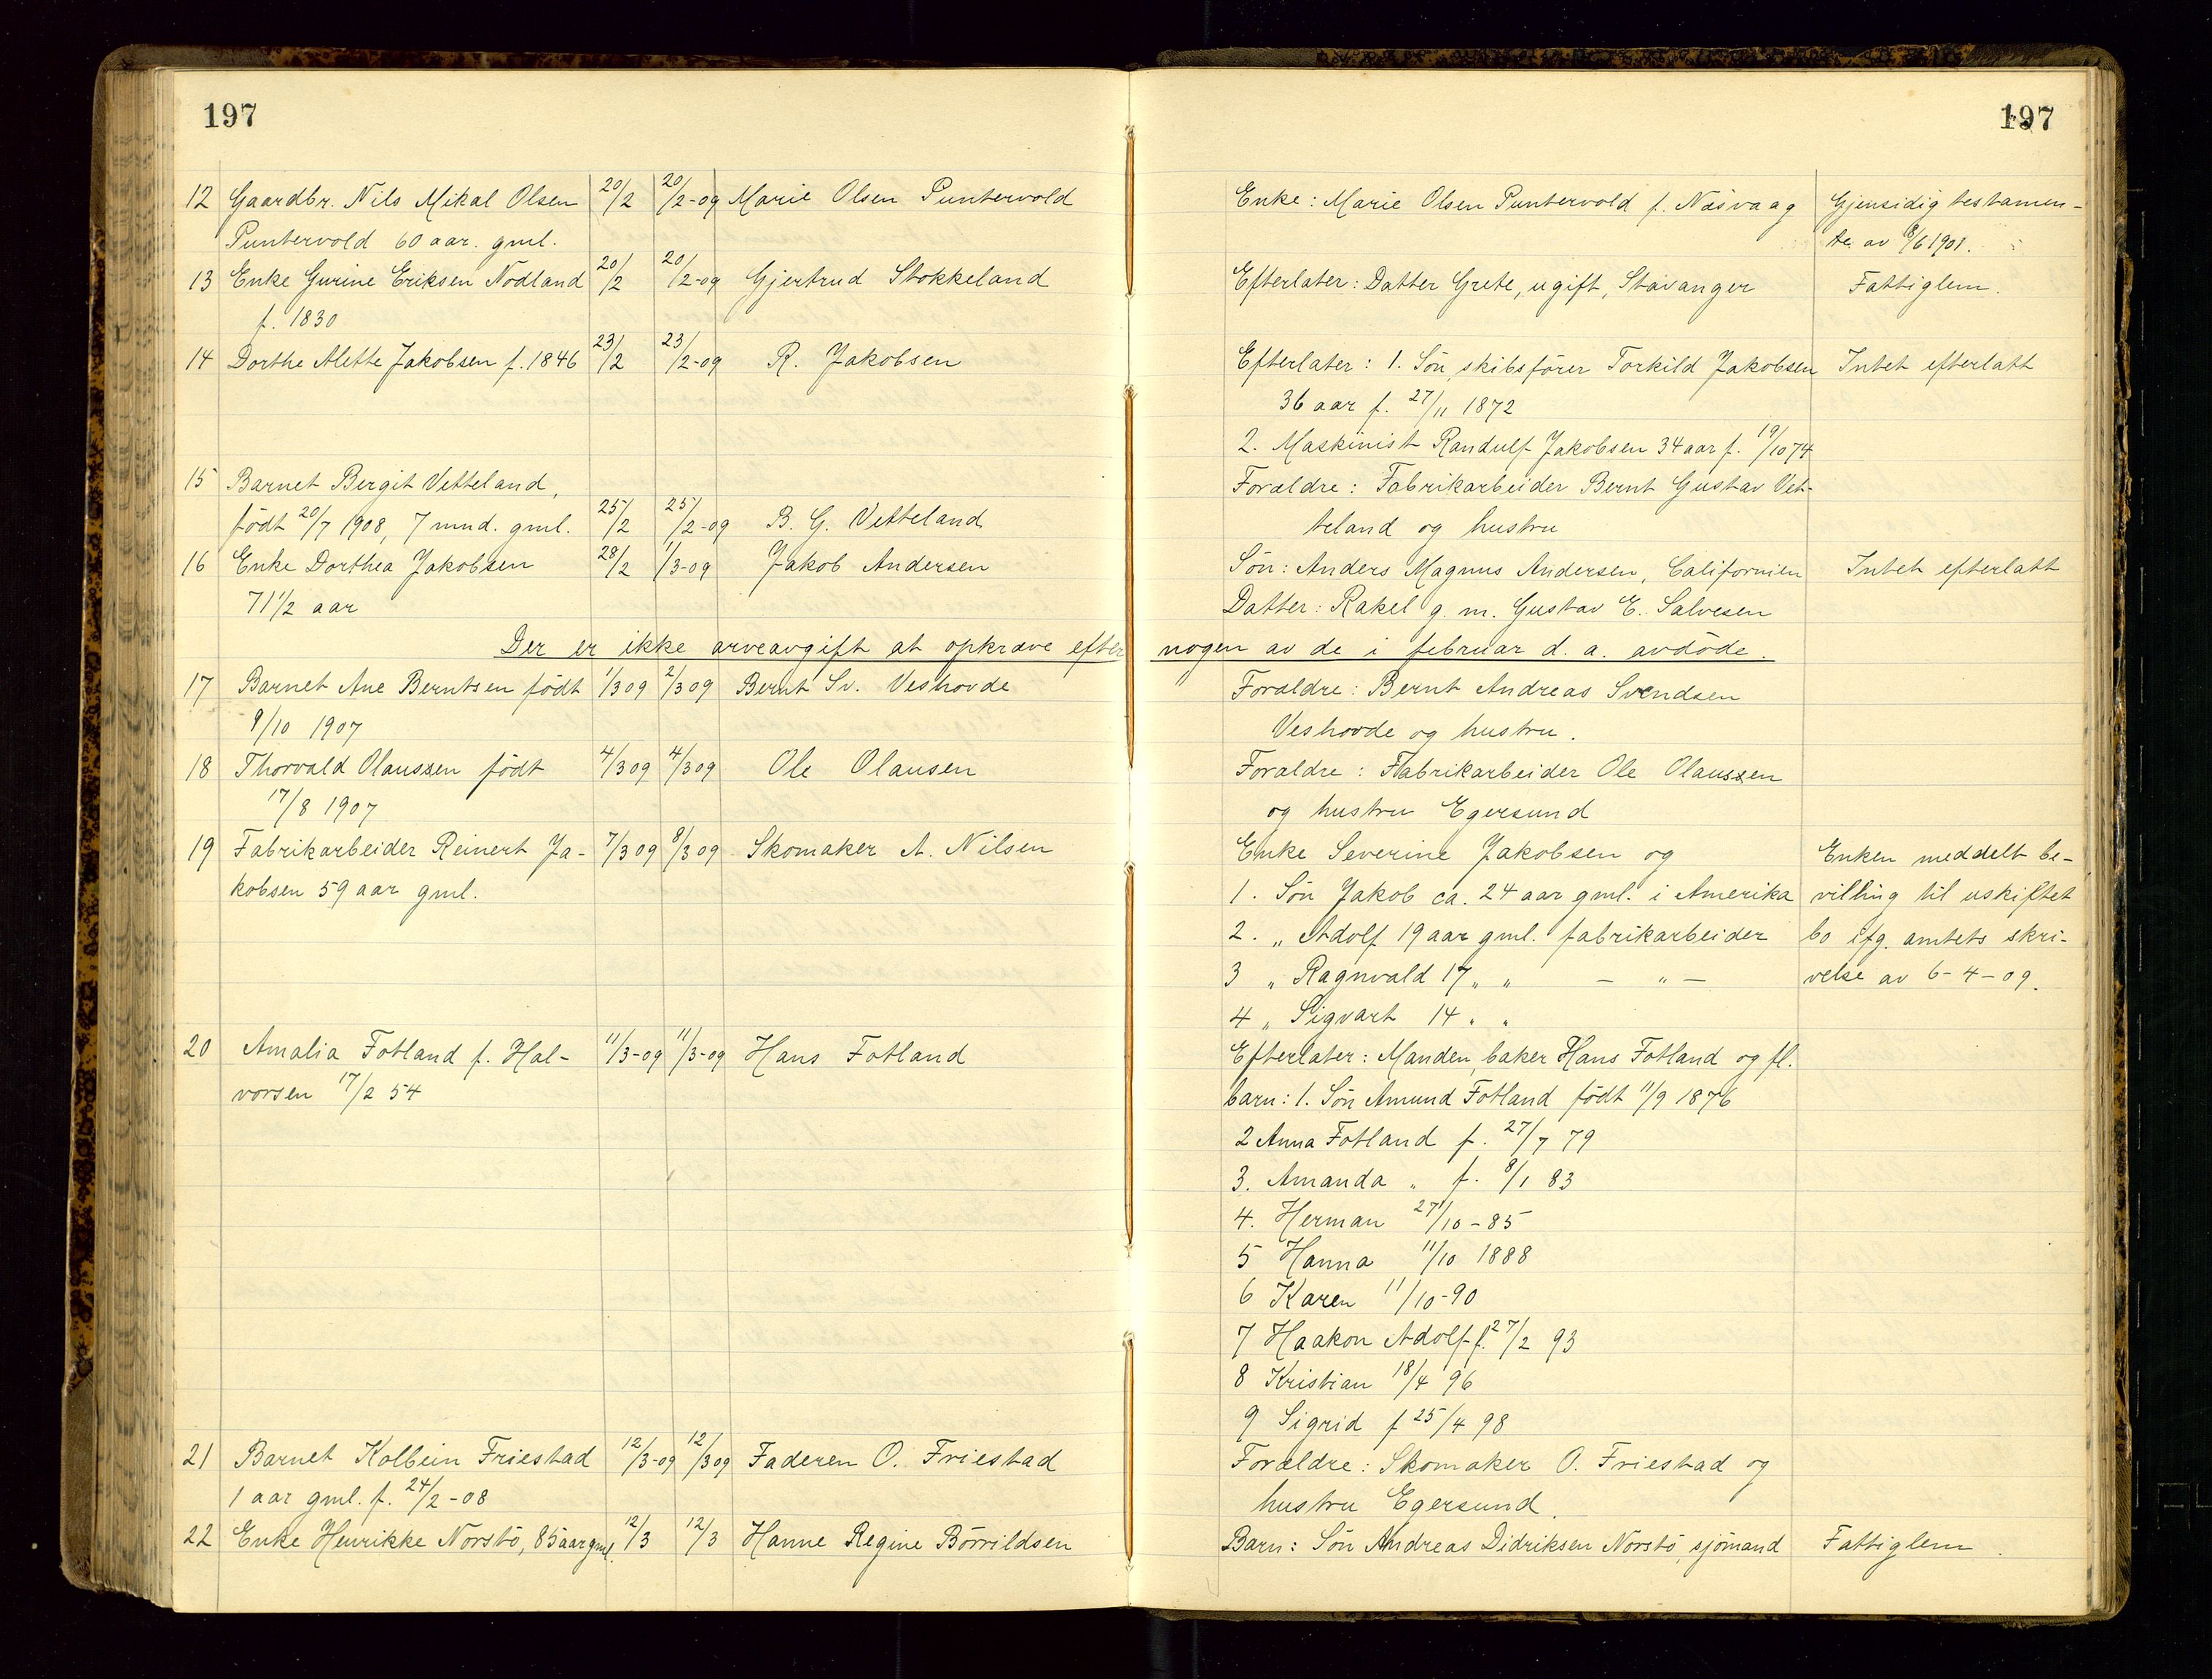 197
12 Gaardbr. Nils Mikal Olsen 20/2 20/2-09 Marie Olsen Puntervold
Puntervold 60 aar. gml.
13 Enke Gurine Eriksen Nodland 20/2 20/2-09 Gjertrud Stokkeland
f. 1830
14 Dorthe Alette Jakobsen f. 1846 23/2 23/2-09 R. Jakobsen
15 Barnet Bergit Vetteland,
födt 20/7 1908, 7 mnd. gml. 25/2 25/2-09 B. G. Vetteland
16 Enke Dorthea Jakobsen 28/2 1/3-09 Jakob Andersen
71 1/2 aar
Der er ikke arveavgift at opkræve efter nogen av de i februar d. a. avdöde.
17 Barnet Ane Berntsen födt 1/3 09 2/3 09 Bernt Sv. Veshovde
9/10 1907
18 Thorvald Olaussen födt 4/3 09 4/3 09 Ole Olausen
17/8 1907
19 Fabrikarbeider Reinert Ja- 7/3 09 8/3 09 Skomaker A. Nilsen
kobsen 59 aar gml.
20 Amalia Fotland f. Hal- 11/3-09 11/3-09 Hans Fotland
vorsen 17/2 54
21 Barnet Kolbein Friestad 12/3-09 12/3 09 Faderen O. Friestad
1 aar gml. f. 24/2-08
22 Enke Henrikke Norstö, 85 aar gml. 12/3 12/3 Hanne Regine Börrildsen
197
Enke: Marie Olsen Puntervold f. Näsvaag Gjensidig testamen-
te av 8/6 1901.
Efterlater: Datter Grete, ugift, Stavanger Fattiglem.
Efterlater: 1. Sön, skibsförer Torkild Jakobsen Intet efterlatt
36 aar f. 27/11 1872
2. Maskinist Randulf Jakobsen 34 aar f. 19/10 74
Forældre: Fabrikarbeider Bernt Gustav Vet-
teland og hustru
Sön: Anders Magnus Andersen, Californien Intet efterlatt
Datter: Rakel g. m. Gustav E. Salvesen
Forældre: Bernt Andreas Svendsen
Veshovde og hustru.
Forældre: Fabrikarbeider Ole Olaussen
og hustru Egersund
Enke Severine Jakobsen og Enken meddelt be-
1. Sön Jakob ca. 24 aar gml. i Amerika villing til uskiftet
2. „ Adolf 19 aar gml. fabrikarbeider bo ifg. amtets skri-
3 „ Ragnvald 17 „ „ — „ — velse av 6-4-09.
4 „ Sigvart 14 „ „
Efterlater: Manden, baker Hans Fotland og fl.
barn: 1. Sön Amund Fotland födt 11/9 1876
2 Anna Fotland f. 27/7 79
3. Amanda „ f. 8/1 83
4. Herman 27/10-85
5 Hanna 11/10 1888
6 Karen 11/10-90
7 Haakon Adolf f. 27/2 93
8 Kristian 18/4 96
9 Sigrid f 25/4 98
Forældre: Skomaker O. Friestad og
hustru Egersund.
Barn: Sön Andreas Didriksen Norstö, sjömand Fattiglem.